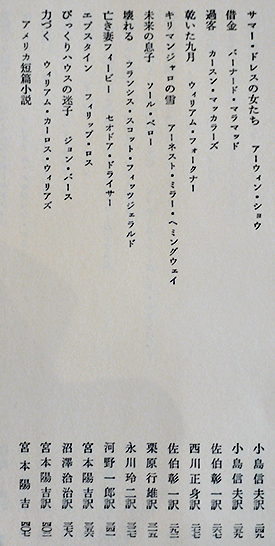 サマー・ドレスの女たち アーウィン・ショウ 小島信夫訳
借金 バーナード・マラマッド 小島信夫訳
過客 カースン・マッカラーズ 佐伯彰一訳
乾いた九月 ウィリアム・フォークナー 西川正身訳
キリマンジャロの雪 アーネスト・ミラー・ヘミングウェイ 佐伯彰一訳
未来の息子 ソール・ベロー 栗原行雄訳
壊れる フランシス・スコット・フィッツジェラルド 永川玲二訳
亡き妻フィービー セオドア・ドライサー 河野一郎訳
エプスタイン フィリップ・ロス 宮本陽吉訳
びっくりハウスの迷子 ジョン・バース 沼澤洽治訳
力づく ウィリアム・カーロス・ウィリアズ 宮本陽吉訳
アメリカ短篇小説 宮本陽吉 四〇七